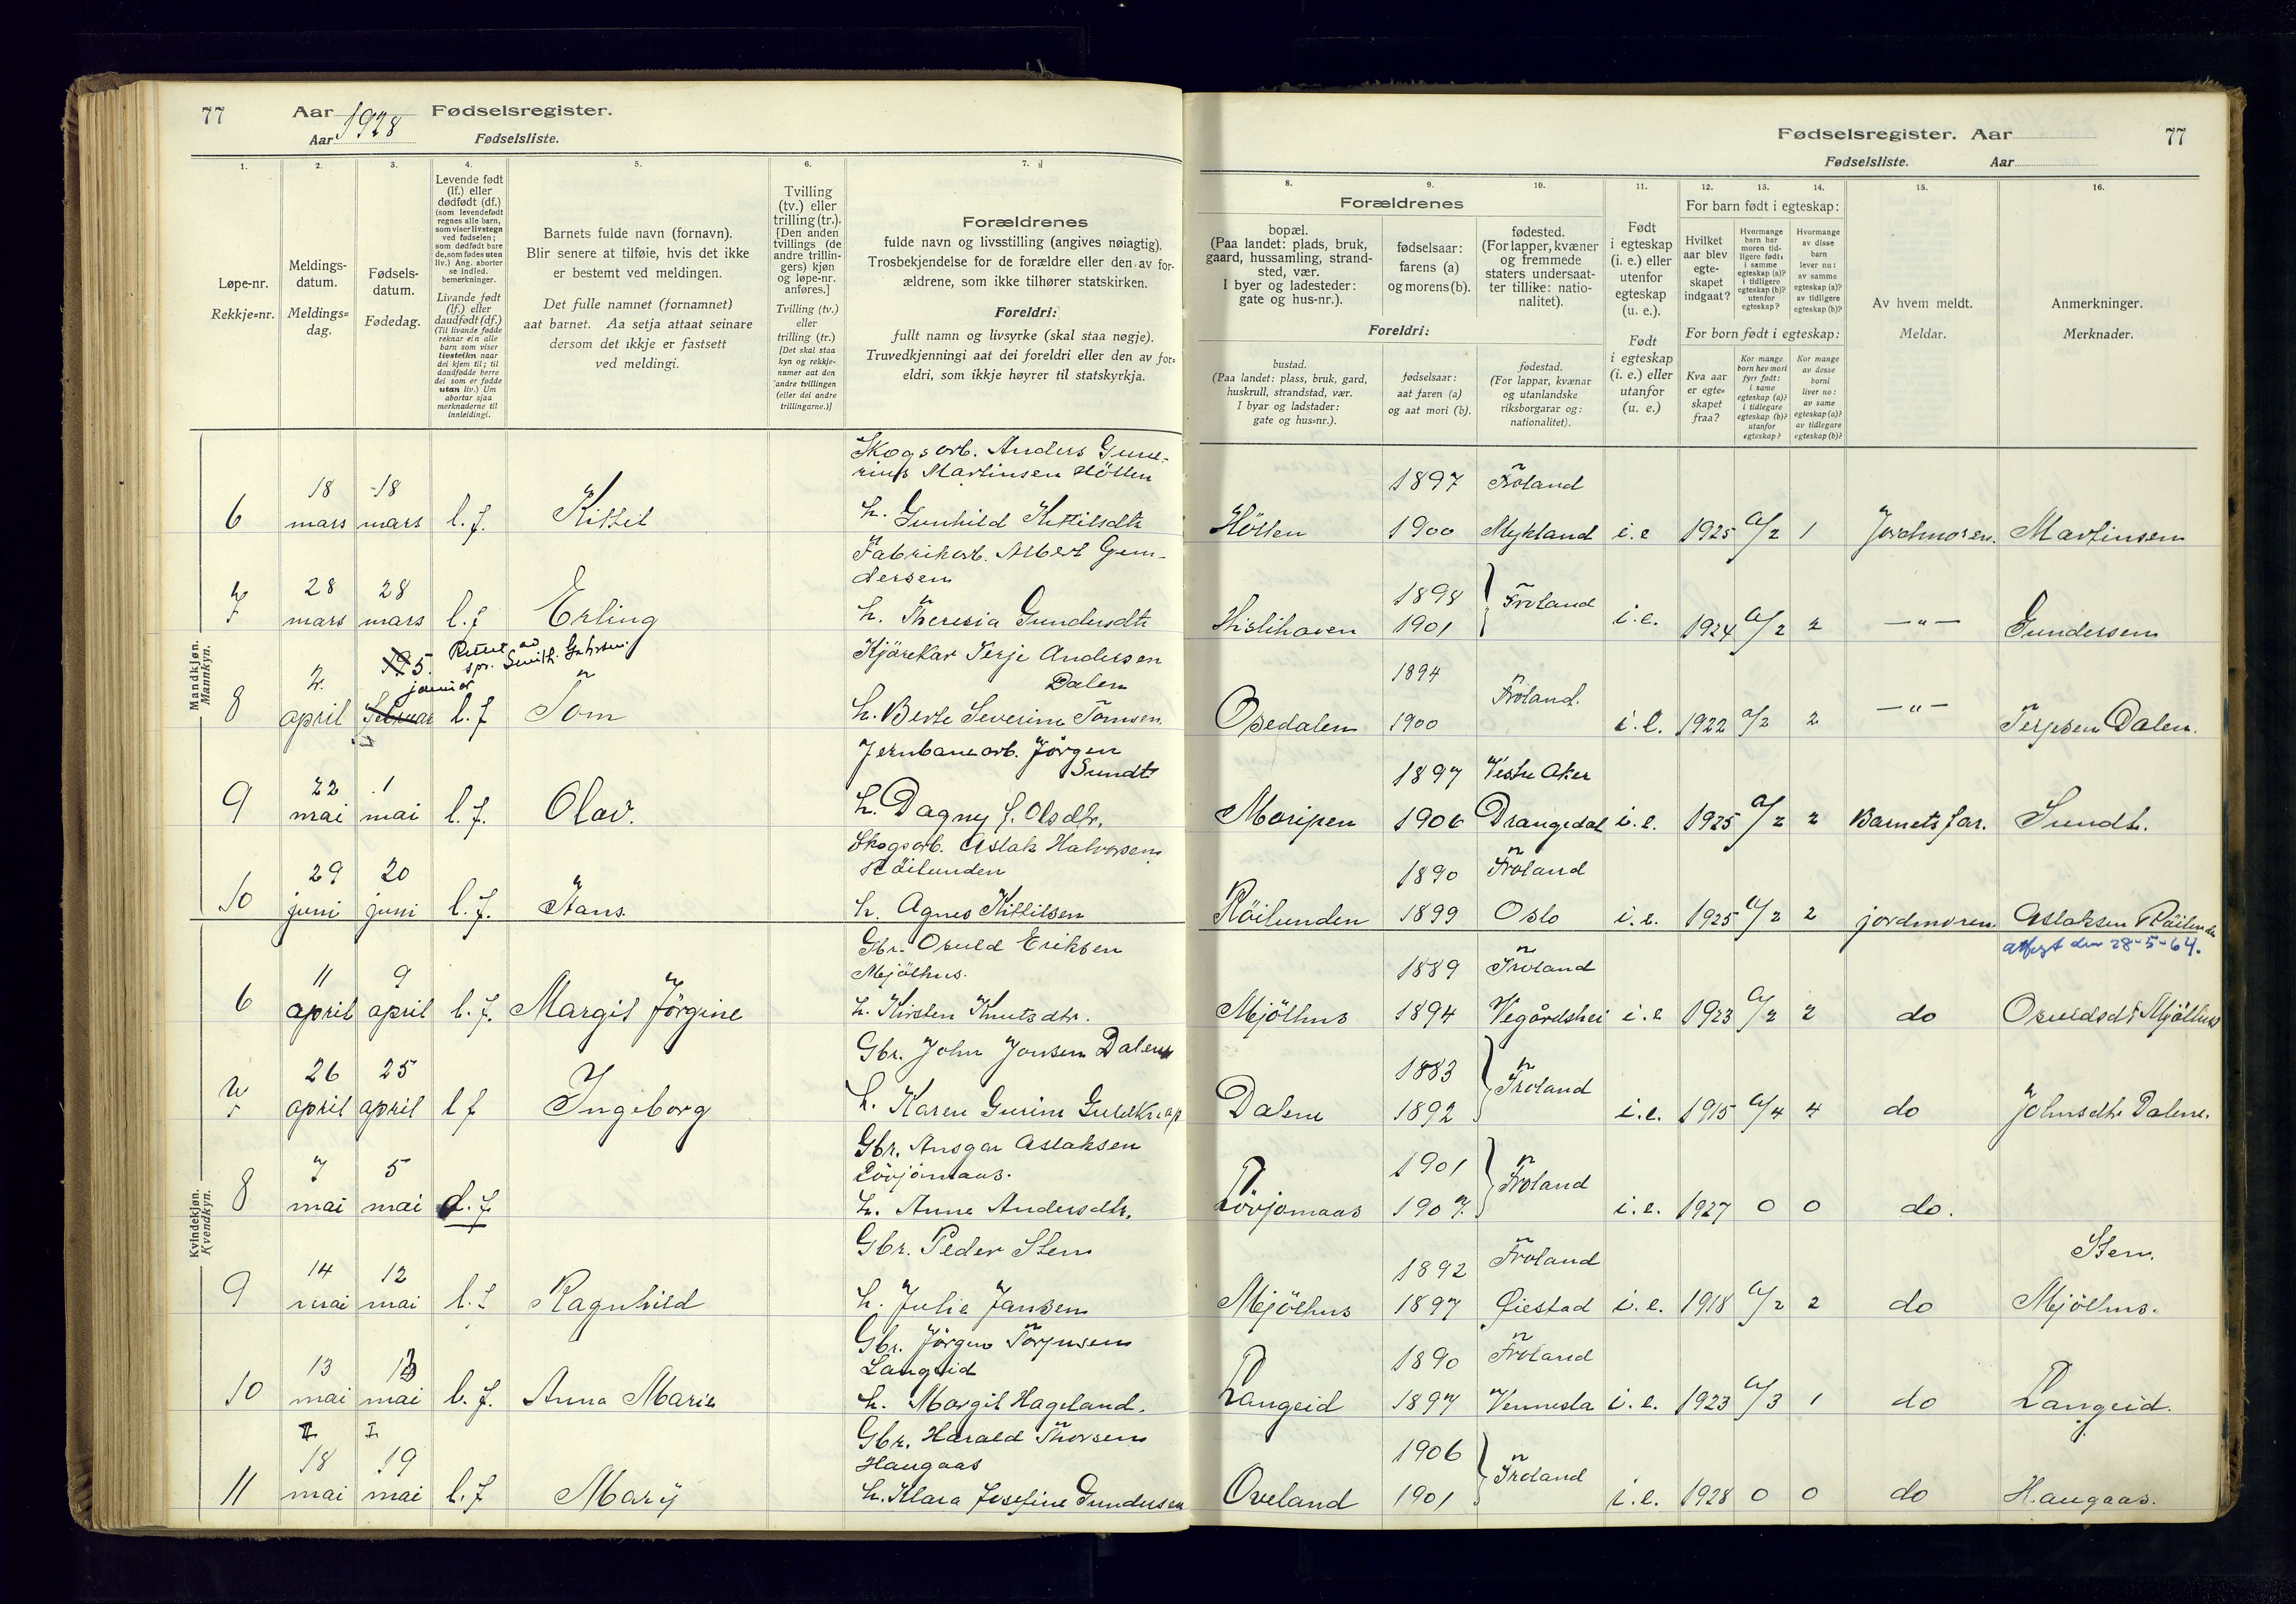 77 Aar 1928 Fødselsregister.
Aar Fødselsliste.
Fødselsregister. Aar 77
Fødselsliste. Aar
1. 2. 3. 4. 5. 6. 7.
Løpe-nr.
Rekkje=nr.
Meldings-
datum.
Meldings=
dag.
Fødsels-
datum.
Fødedag.
Levende født
(lf.) eller
dødfødt (df.)
(som levendefødt
regnes alle barn,
som viser livstegn
ved fødselen;
som dødfødt bare
de, som fødes uten
liv.) Ang. aborter
se indled.
bemerkninger.
Livande født
(lf.) eller
daudfødt (df.)
(Til livande fødde
reknar ein alle
barn som viser
livsteikn naar
dei kjem til; til
daudfødde berre
dei som er fødde
utan liv.) Um
abortar sjaa
merknaderne til
innleidingi.
Barnets fulde navn (fornavn).
Blir senere at tilføie, hvis det ikke
er bestemt ved meldingen.
Det fulle namnet (fornamnet)
aat barnet. Aa setja attaat seinare
dersom det ikkje er fastsett
ved meldingi.
Tvilling
(tv.) eller
trilling (tr.).
[Den anden
tvillings (de
andre trillin-
gers) kjøn
og løpe-nr.
anføres.]
Tvilling (tv.)
eller
trilling (tr.)
[Det skal staa
kyn og rekkje-
numer aat den
andre tvillingen
(eller dei andre
trillingarne.)]
Forældrenes
fulde navn og livsstilling (angives nøiagtig).
Trosbekjendelse for de forældre eller den av for-
ældrene, som ikke tilhører statskirken.
Foreldri:
fullt namn og livsyrke (skal staa nøgje).
Truvedkjenningi aat dei foreldri eller den av for=
eldri, som ikkje høyrer til statskyrkja.
8. 9. 10. 11. 12. 13. 14. 15. 16.
Forældrenes
bopæl.
(Paa landet: plads, bruk,
gaard, hussamling, strand-
sted, vær.
I byer og ladesteder:
gate og hus-nr.).
fødselsaar:
farens (a)
og morens (b).
fødested.
(For lapper, kvæner
og fremmede
staters undersaat-
ter tillike: natio-
nalitet).
Foreldri:
bustad.
(Paa landet: plass, bruk, gard,
huskrull, strandstad, vær.
I byar og ladstader:
gate og hus=nr.).
fødselsaar:
aat faren (a)
og aat mori (b).
fødestad.
(For lappar, kvænar
og utanlandske
riksborgarar og:
nationalitet).
Født
i egteskap
(i. e.) eller
utenfor
egteskap
(u. e.).
Født
i egteskap
(i. e.) eller
utanfor
(u. e.)
For barn født i egteskap:
Hvilket
aar blev
egte-
skapet
indgaat?
Hvormange
barn har
moren tid-
ligere født:
i samme
egteskap (a)?
i tidligere
egteskap (b)?
utenfor
egteskap?
Hvormange
av disse
barn
lever nu:
av samme
egteskap (a)?
av tidligere
egteskap (b)?
For born født i egteskap:
Kva aar
er egte=
skapet
fraa?
Kor mange
born hev mori
fyrr født:
i same
egteskap (a)?
i tidlegare
egteskap (b)?
utanfor
egteskap?
Kor mange
av desse
borni
liver no:
av same
egteskap (a)?
av tidlegare
egteskap (b)?
Av hvem meldt.
Meldar.
Anmerkninger.
Merknader.
Mandkjøn.
Mannkyn.
Skogsarb. Anders Gune-
rius Martinsen Hölten 1897 Froland
18 18
6 mars mars l. f. Kittil h. Gunhild Kittilsdtr Hölten 1900 Mykland i. e 1925 a/2 1 Jordmoren. Martinsen
Fabrikarb. Albert Gun-
dersen 1898 Froland
28 28
7 mars mars l. f Erling h. Theresia Gundersdtr 1901 i. e. 1924 a/2 2 —"— Gundersen
Kjörekar Terje Andersen
Dalen 1894 Froland.
2. 19 5.
januar
8 april februar l. f Tom h. Berte Severine Tomsen. Osedalen 1900 i. e. 1922 a/2 2 —"— Terjesen Dalen.
Jernbanearb. Jörgen
Sundt 1897 Vestre Aker
22 1
9 mai mai l. f. Olav. h. Dagny f. Olsdtr. Moripen 1906 Drangedal i. e. 1925 a/2 2 Barnets far. Sundt.
Skogsarb. Aslak Halvorsen
Röilunden 1890 Froland
29 20
10 juni juni l. f. Hans h. Agnes Kittilsen Röilunden 1899 Oslo i. e. 1925 a/2 2 jordmoren. Aslaksen Röilunden
Kvindekjøn.
Kvendkyn.
attest den 28-5-64.
Gbr. Osuld Eriksen
Mjölhus. 1889 Froland
11 9
6 april april l. f. Margit Jörgine h. Kirsten Knutsdtr. Mjölhus 1894 Vegårdshei i. e 1923 a/2 2 do Osuldsdtr Mjölhus
Gbr. John Jonsen Dalene 1883 Froland
26 25
7 april april l f Ingeborg h. Karen Gurine Guldknap Dalene 1892 i. e. 1915 a/4 4 do Johnsdtr Dalene.
Gbr. Ansgar Aslaksen
Lövjomaas. 1901 Froland
7 5
8 mai mai d. f h. Anne Andersdtr. Lövjomaas 1907. i. e. 1927 0 0 do.
Gbr. Peder Sten 1892 Froland Sten.
14 12
9 mai mai l. f Ragnhild h. Julie Jansen Mjölhus 1897 Øiestad i. e. 1918 a/2 2 do Mjölhus.
Gbr. Jörgen Torjusen
Langeid 1890 Froland
13 13
10 mai mai l. f. Anna Marie h. Margit Hageland. Langeid 1897 Vennesla i. e. 1923 a/3 1 do Langeid.
Gbr. Harald Thorsen
Haugaas 1906 Froland
18 19
11 mai mai l. f Mary h. Klara Josefine Gundersen Oveland 1901 i. e. 1928 0 0 do Haugaas.